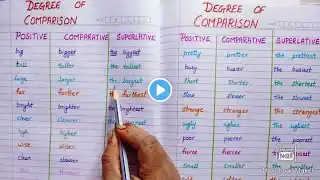 DEGREE OF
COMPARISON
POSITIVE COMPARATIVE SUPERLATIVE
big bigger the biggest
tall taller the tallest
large larger the largest
far farther the farthest
bright brighter the brightest
clever cleverer
high higher
wise wiser
clean cleaner
DEGREE OF
COMPARISON
POSITIVE COMPARATIVE SUPERLATIVE
pretty prettier the prettiest
busy busier the busiest
short shorter the shortest
slow slower the slowest
strange stranger the strangest
ugly uglier the ugliest
poor poorer the poorest
fierce fiercer
small smaller the smallest